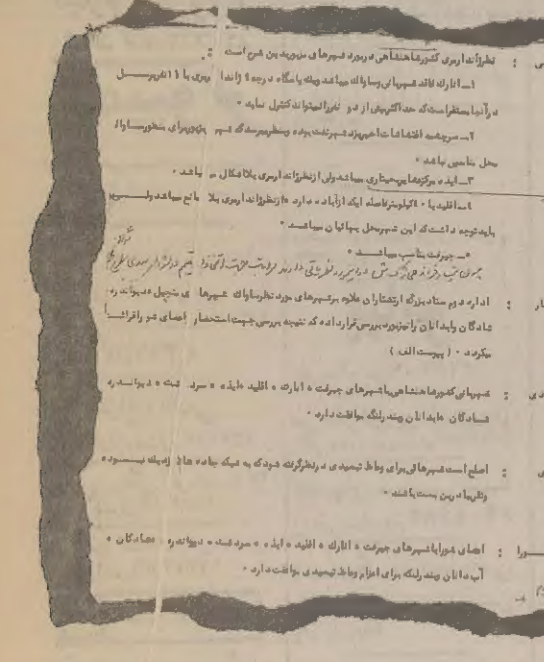 ی : نظر ژاندارمری کشور شاهنشاهی در مورد شهرهای مزبور بدین شرح است :
۱ـ انارک فاقد شهربانی و ساواک میباشد و یک پاسگاه درجه ژاندارمری با ۱۱ نفر پرسنل
در آنجا مستقر است که حداکثر بیش از دو نفر را نمیتواند کنترل نماید ۰
۲ـ سرچشمه اغتشاشات اخیر یزد شهر تفت بوده و بنظر میرسد که شهر مزبور برای منظور ساواک
محل مناسبی باشد ۰
۳ـ ایذه مرکز عشایر بختیاری میباشد ولی از نظر ژاندارمری بلااشکال می باشد ۰
۴ـ اقلید با ۶۰ کیلومتر فاصله ایکه از آباده دارد از نظر ژاندارمری بلا مانع میباشد ولی
باید توجه داشت که این شهر محل بهائیان میباشد ۰
۵ـ جیرفت مناسب میباشد ۰
ار : اداره دوم ستاد بزرگ ارتشتاران علاوه بر شهرهای مورد نظر ساواک شهرهای منجیل دیواندره
شادگان و ابدانان را نیز مورد بررسی قرار داده که نتیجه بررسی جهت استحضار اعضای شورا قرائت
میگردد ۰ ( پیوست الف )
دی : شهربانی کشور شاهنشاهی با شهرهای جیرفت ، انارک ، اقلید ، ایذه ، سردشت ، دیواندره
شادگان ، ابدانان و بندرلنگه موافقت دارد ۰
ی : اصلح است شهرهائی برای وعاظ تبعیدی در نظر گرفته شود که به شبکه جاده ها نزدیک نبوده
و تقریبا در بن بست باشند ۰
ورا : اعضای شورا با شهرهای جیرفت ، انارک ، اقلید ، ایذه ، سردشت ، دیواندره ، شادگان ،
آبدانان و بندرلنگه برای اعزام وعاظ تبعیدی موافقت دارند ۰